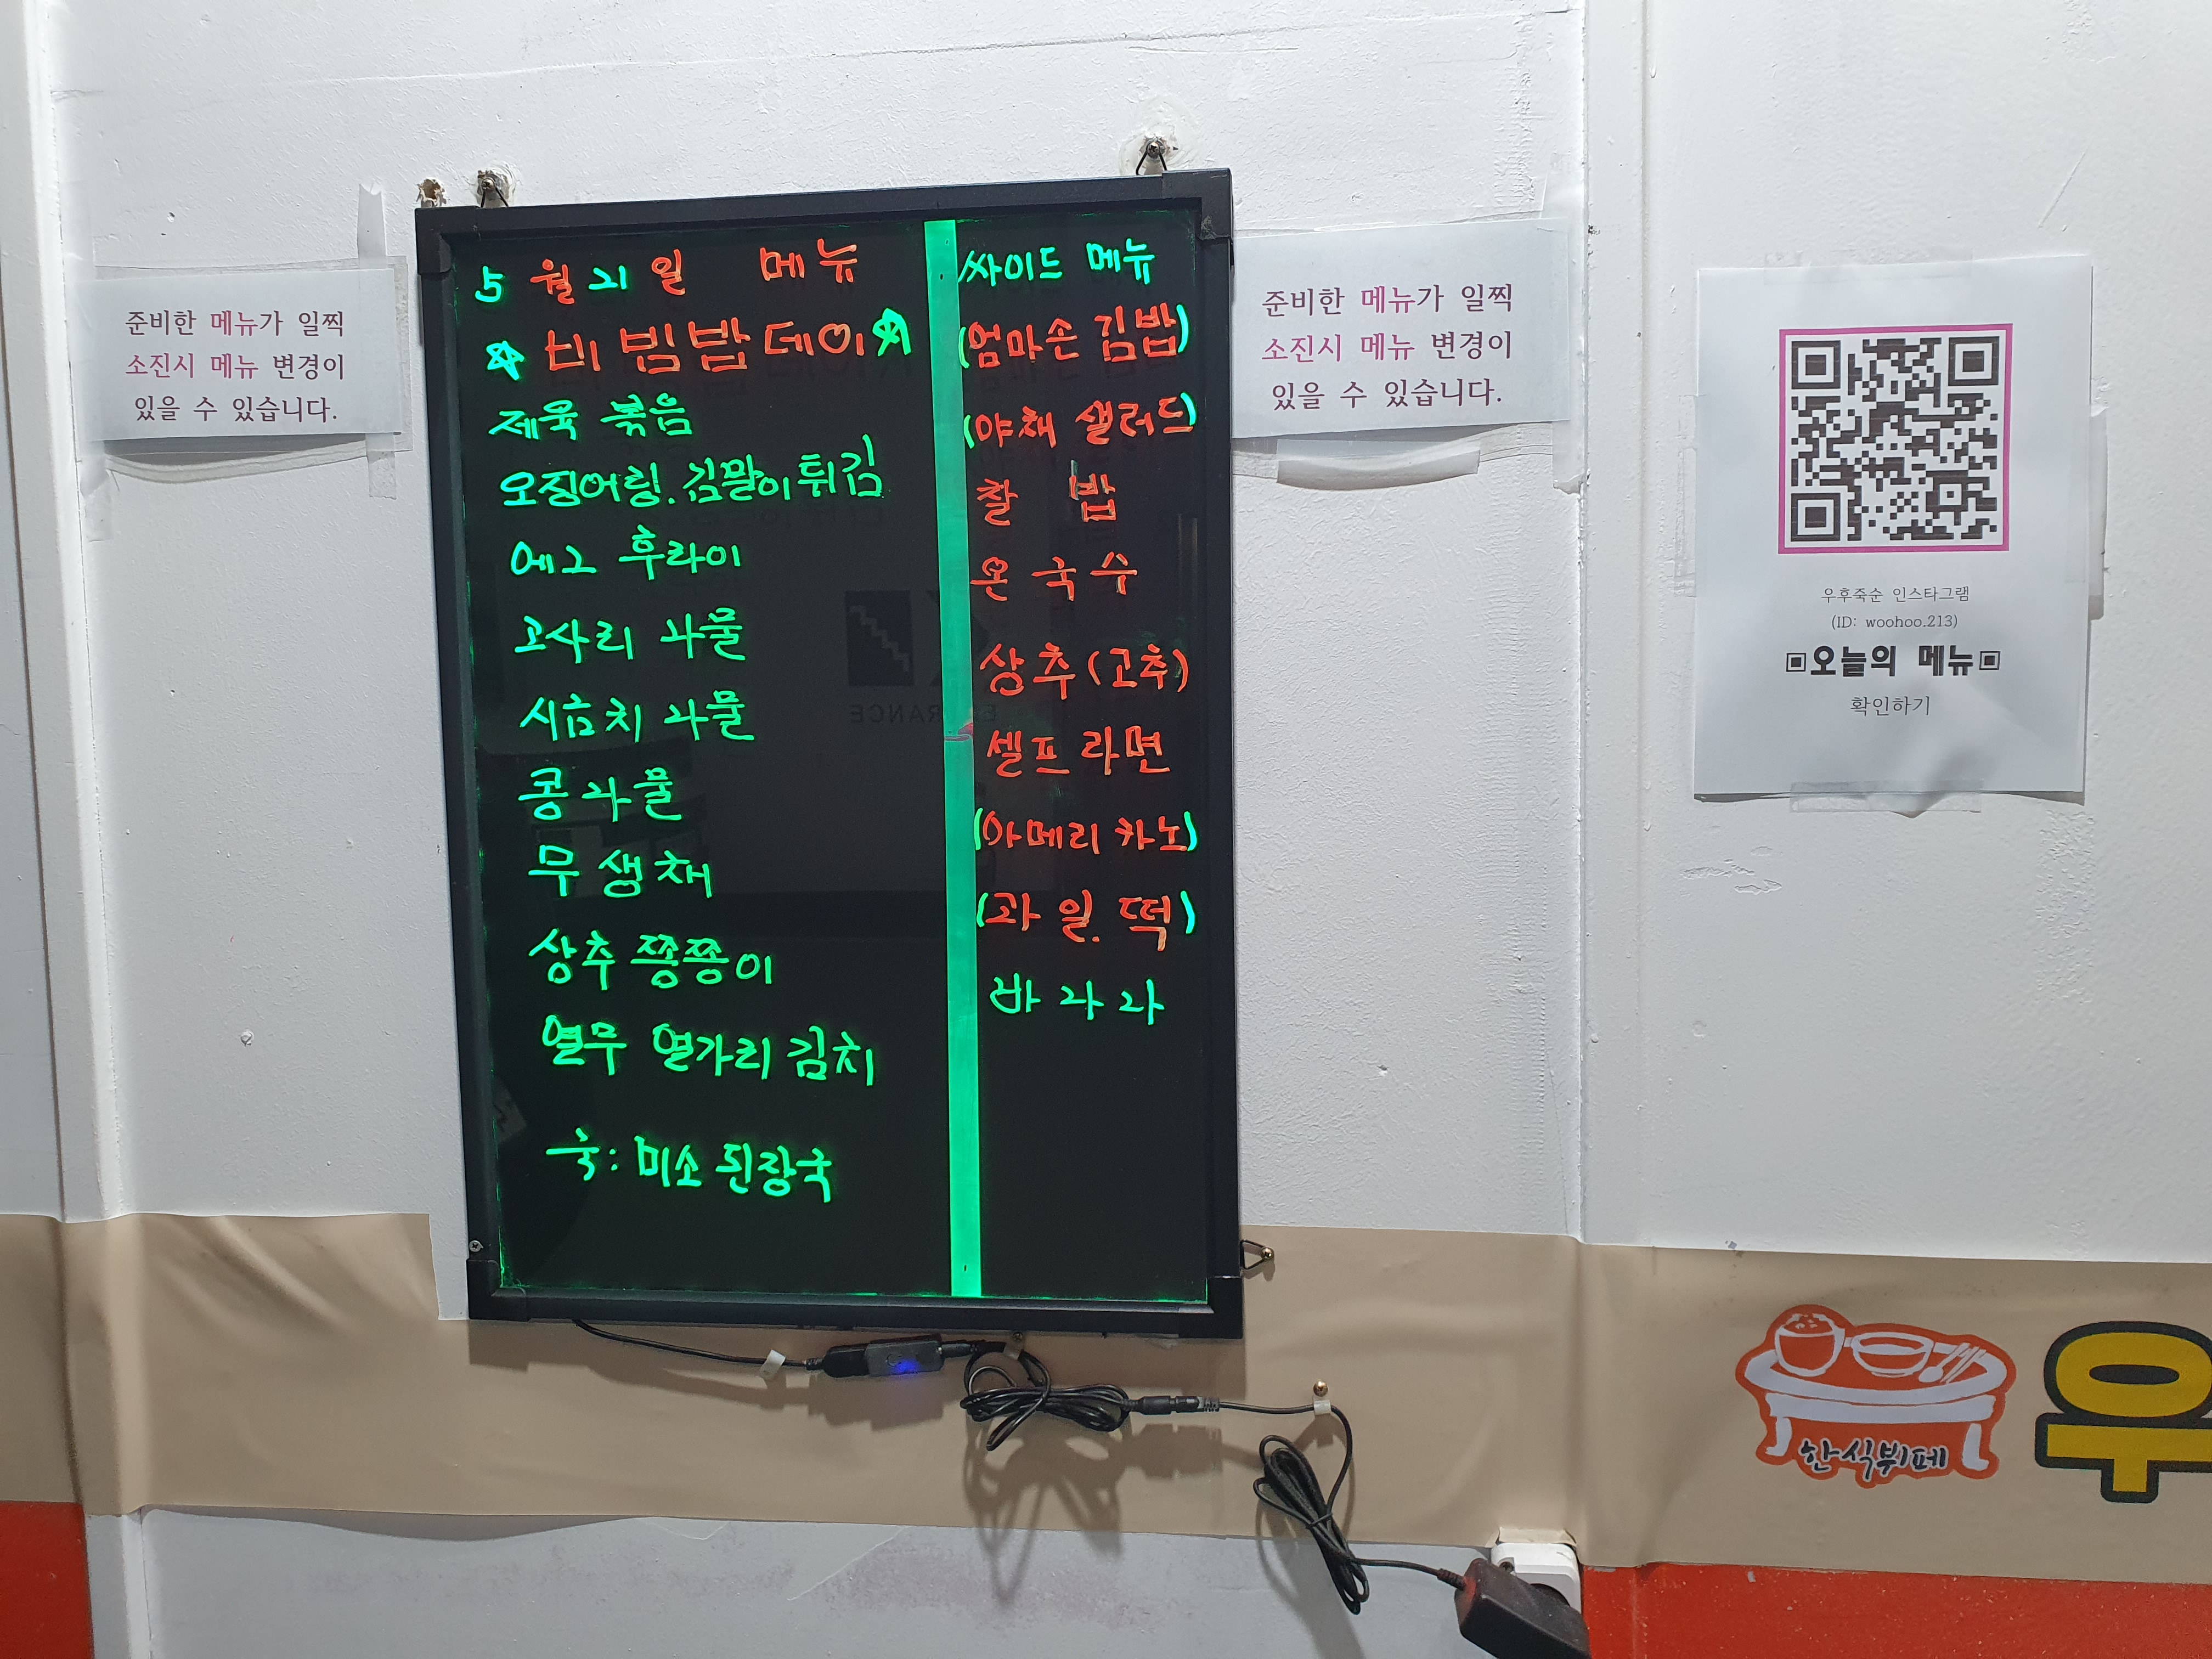 준비한 메뉴가 일찍
소진시 메뉴 변경이
있을 수 있습니다.
5월 21일 메뉴
비빔밥데이
제육 볶음
오징어링. 김말이 튀김
에그 후라이
고사리 나물
시금치 나물
콩나물
무생채
상추 쫑쫑이
열무 열가리 김치
국: 미소 된장국
싸이드 메뉴
(엄마손 김밥)
(야채 샐러드)
찰 밥
온국수
상추(고추)
셀프 라면
(아메리카노)
(과일. 떡)
바나나
준비한 메뉴가 일찍
소진시 메뉴 변경이
있을 수 있습니다.
우후죽순 인스타그램
(ID: woohoo.213)
▣오늘의 메뉴▣
확인하기
한식뷔페
우